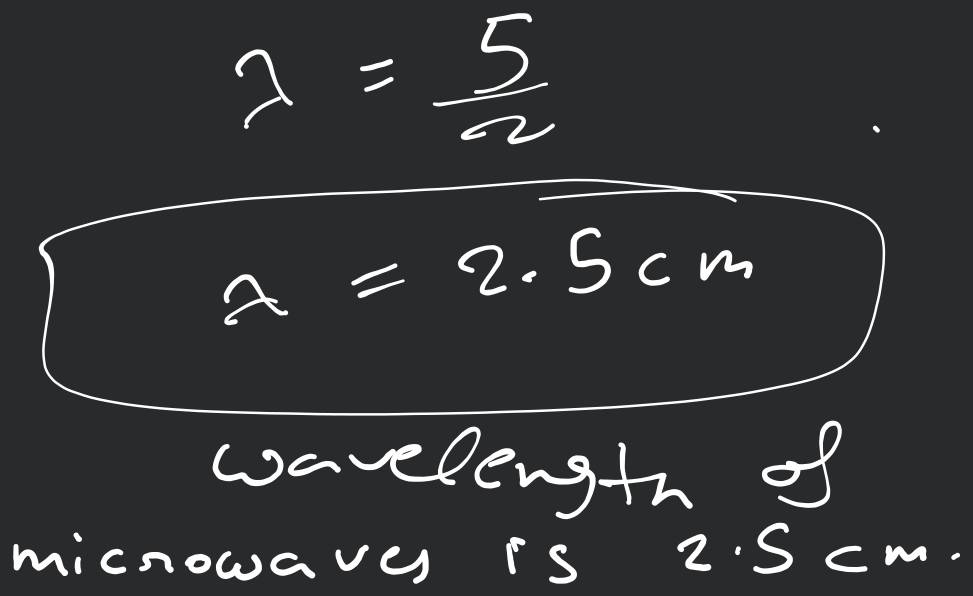 λ = 5/2
λ = 2.5 cm
wavelength of
microwaves is 2.5 cm.